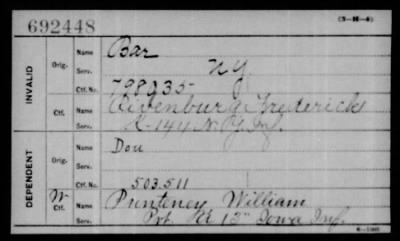 692448
(3-M-4)
INVALID
Orig. Name Bar
Serv. N.Y.
Ctf. No. 798935
Ctf. Name Rivenburg Frederick
Serv. K-144 N.Y. Inf.
DEPENDENT
Orig. Name Dou
Serv.
Ctf. No. 503511
W Ctf. Name William
Serv. Pvt. 13" Iowa Inf.